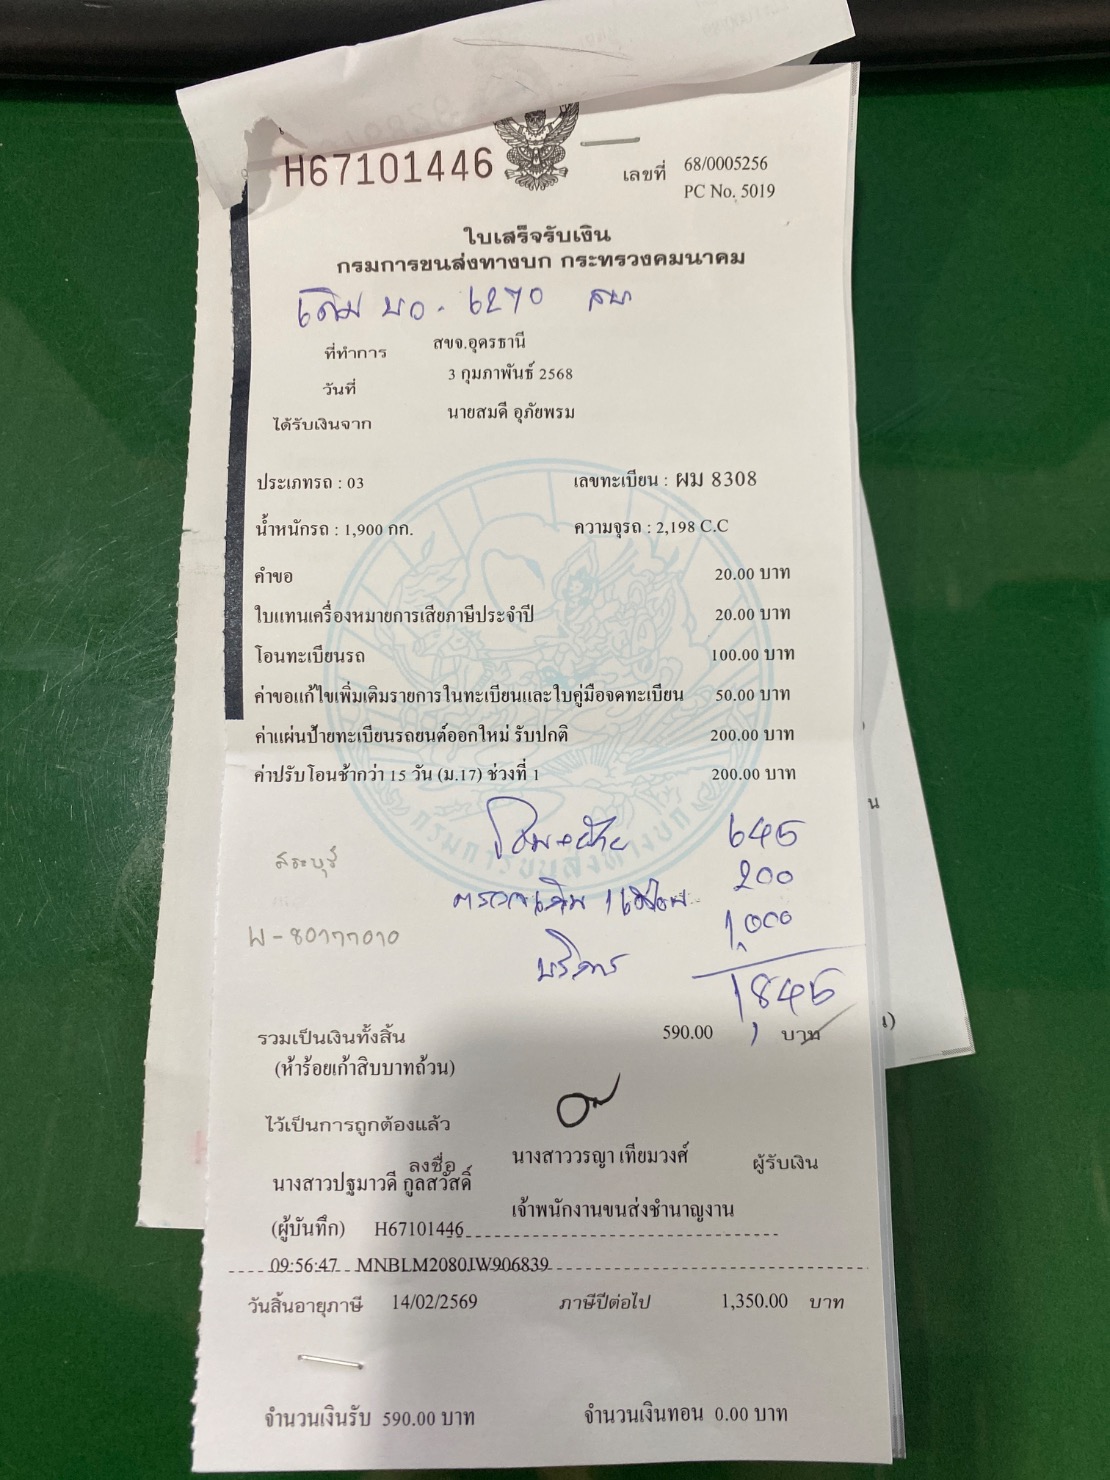 H67101446
เลขที่ 68/0005256
PC No. 5019
ใบเสร็จรับเงิน
กรมการขนส่งทางบก กระทรวงคมนาคม
เดิม บอ. 6270 สบ
ที่ทำการ สขจ.อุดรธานี
วันที่ 3 กุมภาพันธ์ 2568
ได้รับเงินจาก นายสมดี อุภัยพรม
ประเภทรถ : 03 เลขทะเบียน : ผม 8308
น้ำหนักรถ : 1,900 กก. ความจุรถ : 2,198 C.C
คำขอ 20.00 บาท
ใบแทนเครื่องหมายการเสียภาษีประจำปี 20.00 บาท
โอนทะเบียนรถ 100.00 บาท
ค่าขอแก้ไขเพิ่มเติมรายการในทะเบียนและใบคู่มือจดทะเบียน 50.00 บาท
ค่าแผ่นป้ายทะเบียนรถยนต์ออกใหม่ รับปกติ 200.00 บาท
ค่าปรับโอนช้ากว่า 15 วัน (ม.17) ช่วงที่ 1 200.00 บาท
กรมการขนส่งทางบก
โอน+ย้าย 645
สระบุรี
200
1,000
บริการ
1,845
รวมเป็นเงินทั้งสิ้น 590.00 บาท
(ห้าร้อยเก้าสิบบาทถ้วน)
ไว้เป็นการถูกต้องแล้ว
ลงชื่อ นางสาววรญา เทียมวงศ์ ผู้รับเงิน
นางสาวปฐมาวดี กูลสวัสดิ์
เจ้าพนักงานขนส่งชำนาญงาน
(ผู้บันทึก) H67101446
09:56:47 MNBLM2080JW906839
วันสิ้นอายุภาษี 14/02/2569 ภาษีปีต่อไป 1,350.00 บาท
จำนวนเงินรับ 590.00 บาท จำนวนเงินทอน 0.00 บาท